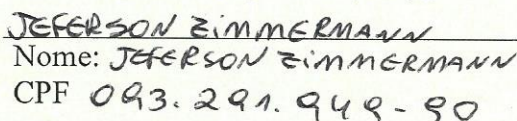 JEFERSON ZIMMERMANN
Nome: JEFERSON ZIMMERMANN
CPF 093.291.949-90